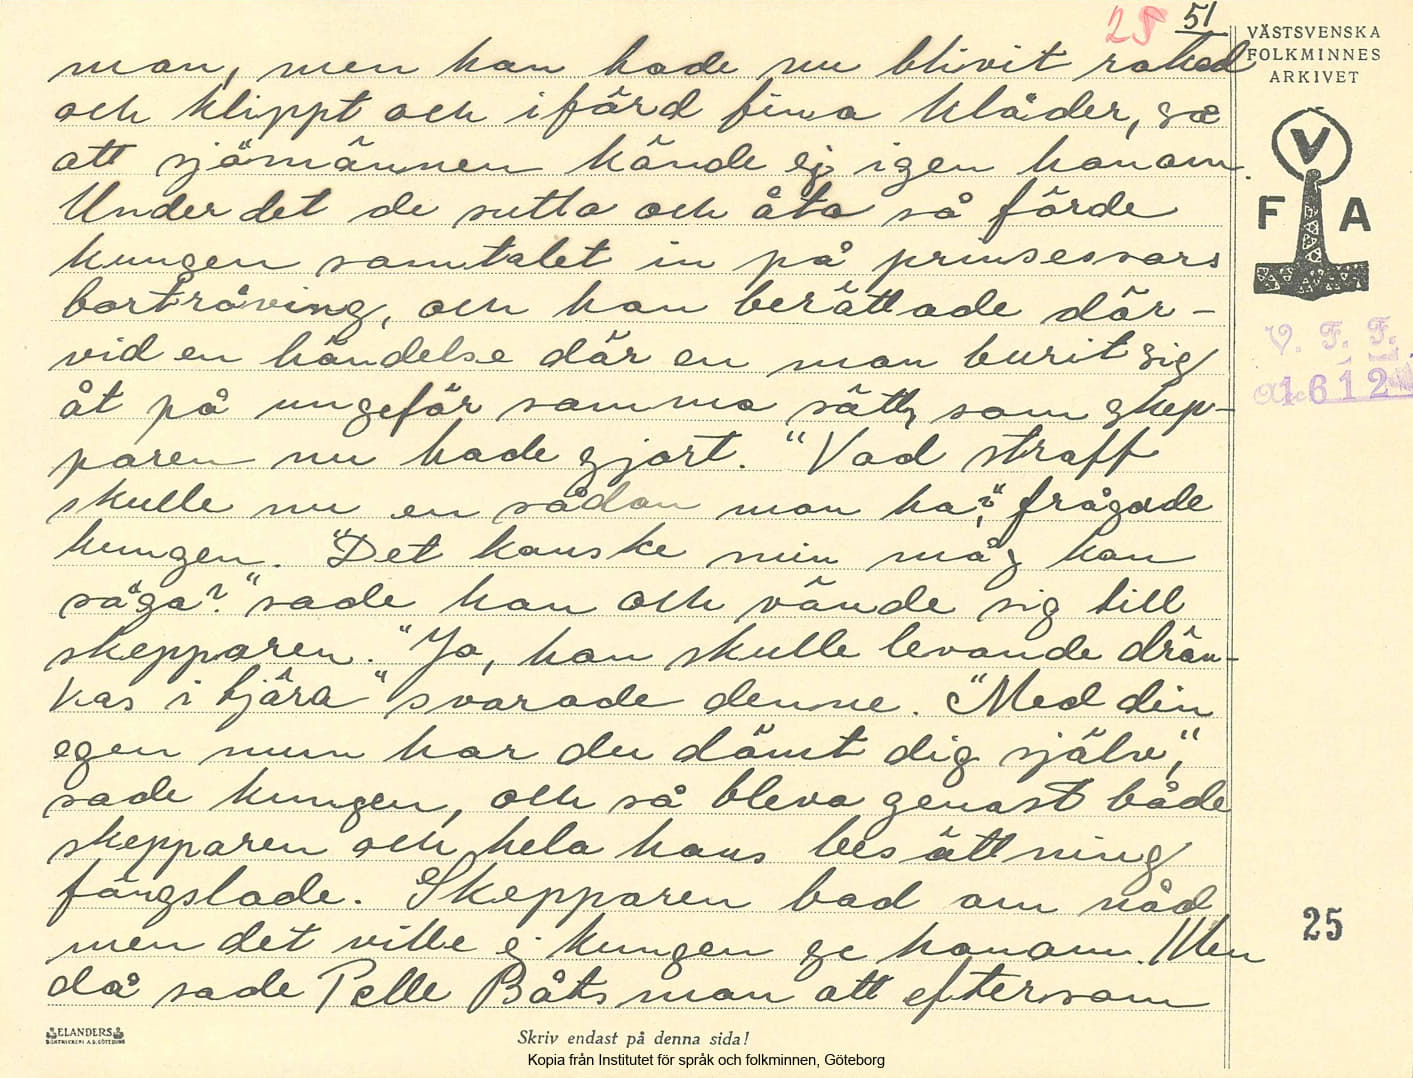 25 51
VÄSTSVENSKA
FOLKMINNES
ARKIVET
man, men han hade nu blivit rakad
och klippt och iförd fina kläder, så
att sjömännen kände ej igen honom.
Under det de sutto och åto så förde
kungen samtalet in på prinsessans
bortröving, och han berättade där-
vid en händelse där en man burit sig
åt på ungefär samma sätt, som skep-
paren nu hade gjort. "Vad straff
skulle nu en sådan man ha?", frågade
kungen. "Det kanske min måg kan
säga?" sade han och vände sig till
skepparen. "Ja, han skulle levande drän-
kas i tjära" svarade denne. "Med din
egen mun har du dömt dig själv,"
sade kungen, och så bleva genast både
skepparen och hela hans besättning
fängslade. Skepparen bad om nåd
men det ville ej kungen ge honom. Men
då sade Pelle Båtsman att eftersom
V
F A
V. F. F.
Acc 1612
25
ELANDERS
Skriv endast på denna sida!
Kopia från Institutet för språk och folkminnen, Göteborg